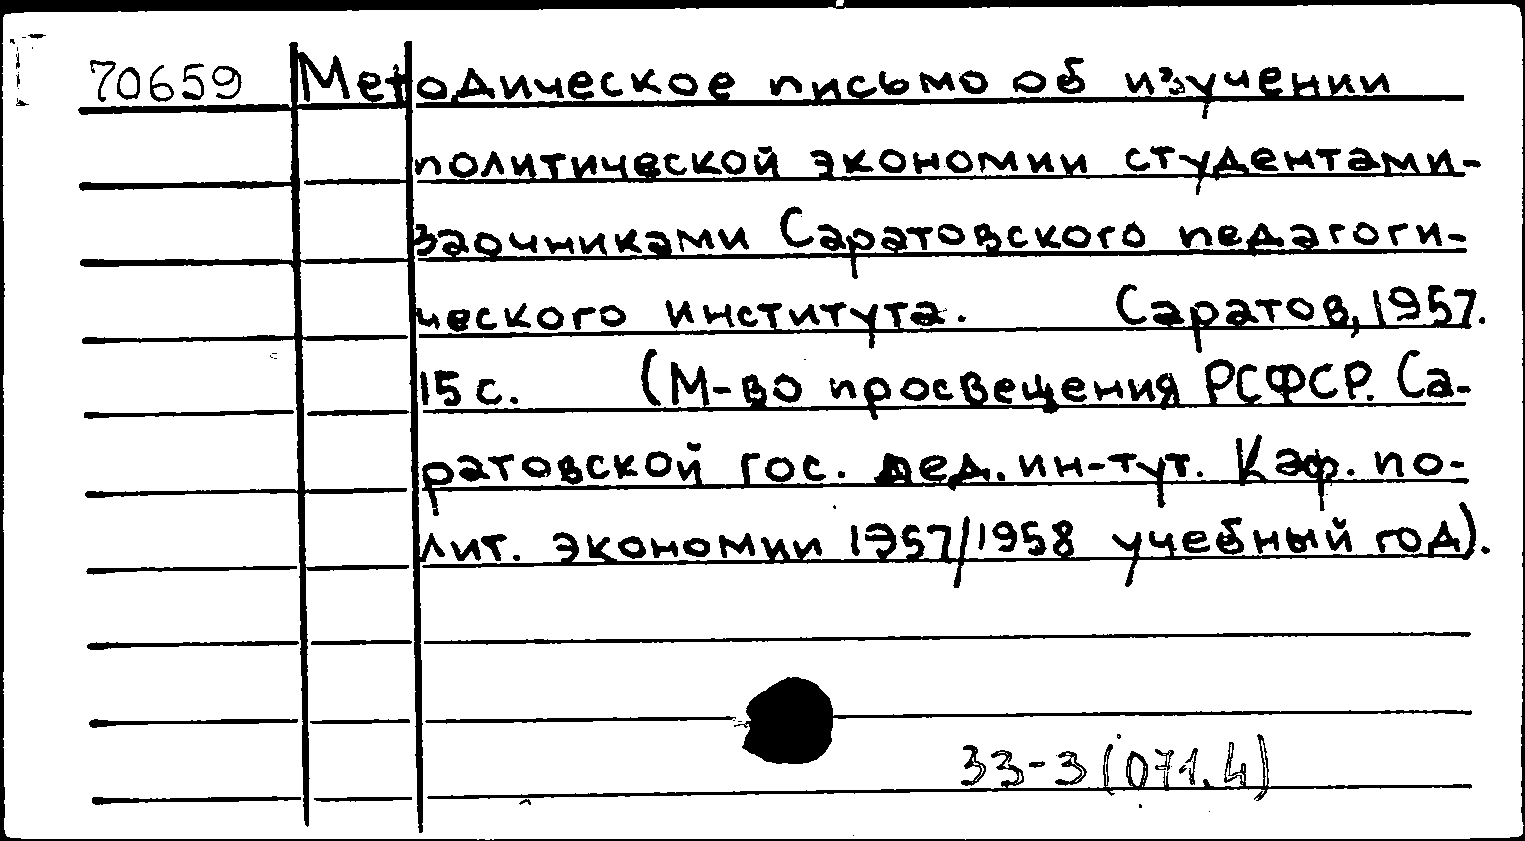 70659 Методическое письмо об изучении
политической экономии студентами-
заочниками Саратовского педагоги-
ческого института. Саратов, 1957.
15 с. (М-во просвещения РСФСР. Са-
ратовской гос. пед. ин-тут. Каф. по-
лит. экономии 1957/1958 учебный год).
33-3(071.4)